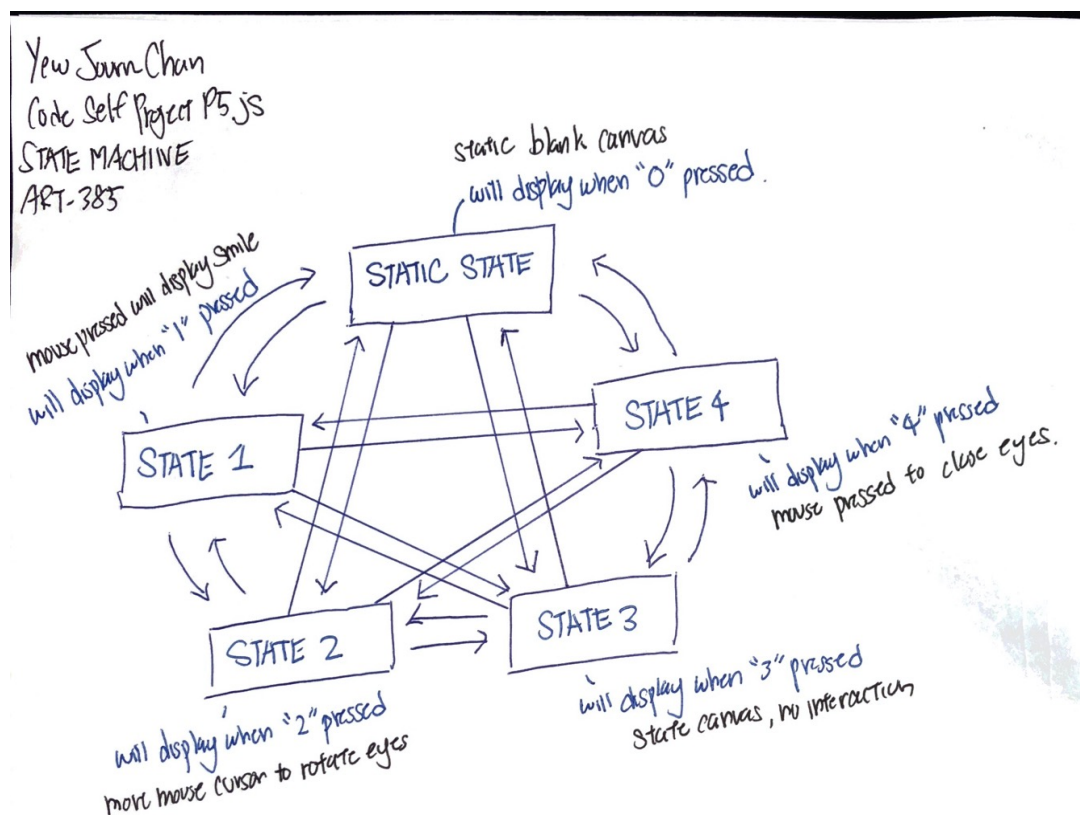 Yew Journ Chan
Code Self Project P5js
STATE MACHINE
ART-385
static blank canvas
will display when "0" pressed.
STATIC STATE
mouse pressed will display smile
will display when "1" pressed
STATE 1
STATE 4
will display when "4" pressed
mouse pressed to close eyes.
STATE 2
STATE 3
will display when "3" pressed
state canvas, no interaction
will display when "2" pressed
move mouse cursor to rotate eyes